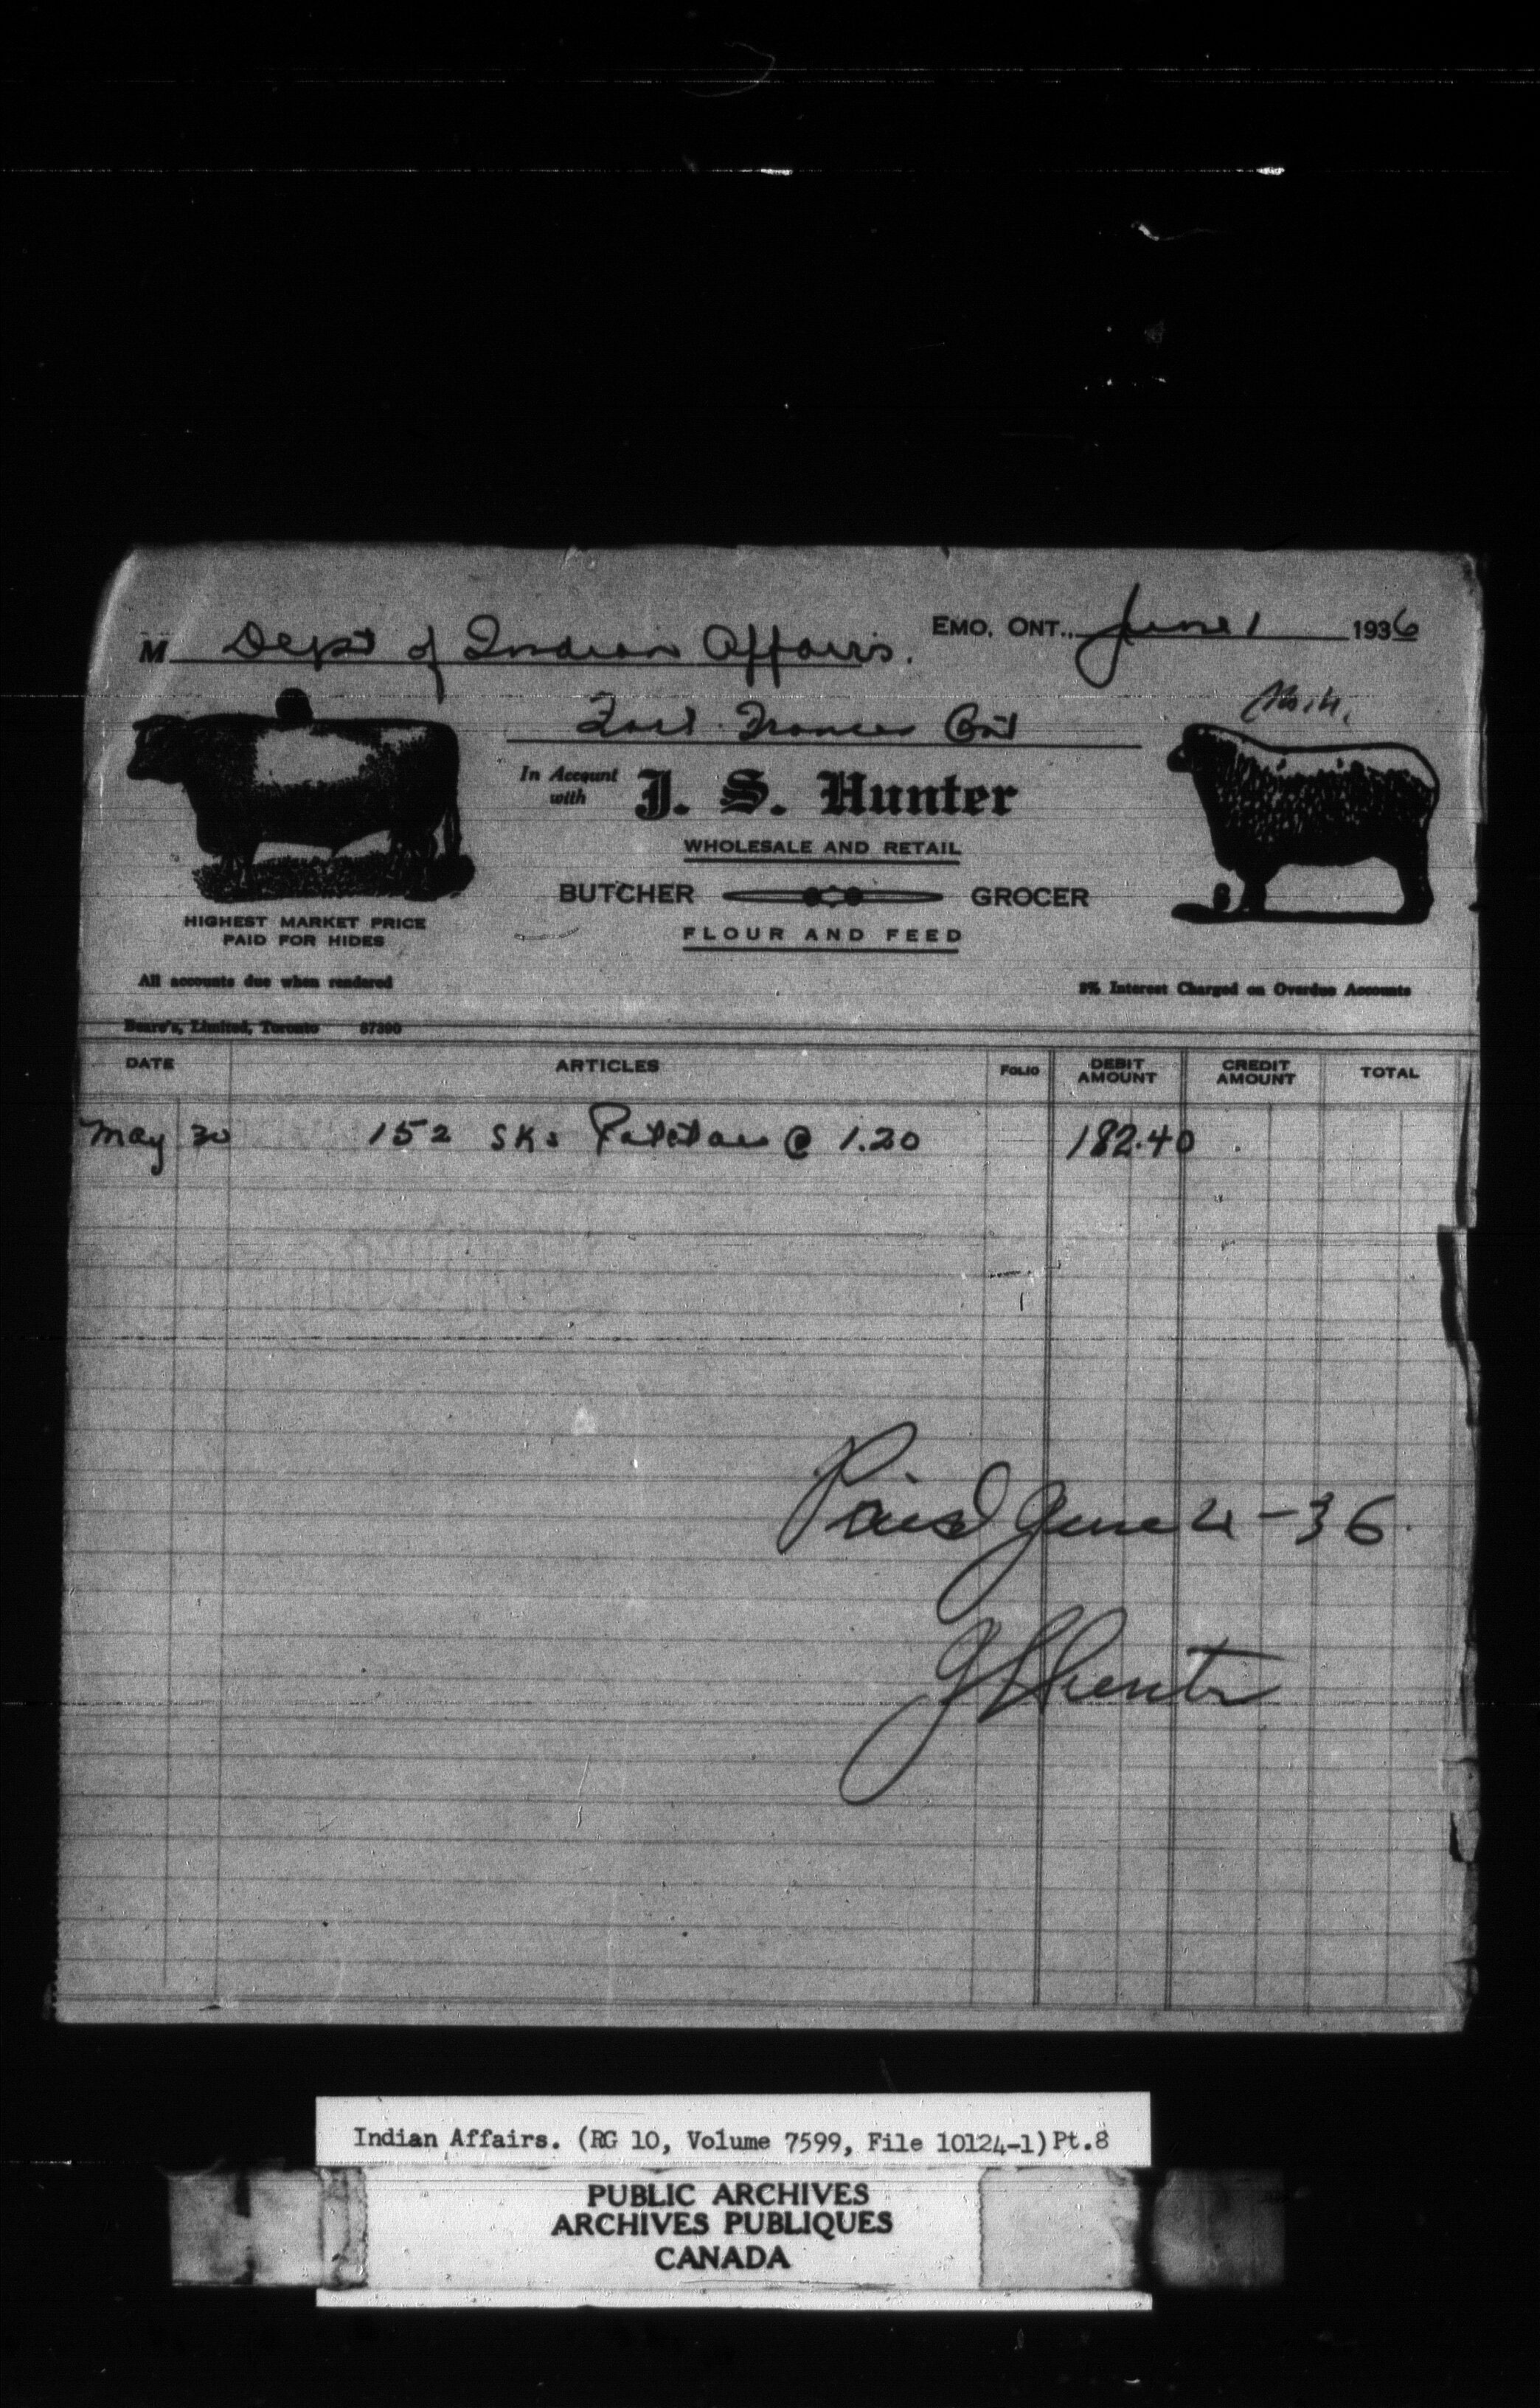 EMO, ONT., June 1 1936
M Dept of Indian Affairs.
Fort Frances Ont
In Account with J. S. Hunter
WHOLESALE AND RETAIL
BUTCHER GROCER
FLOUR AND FEED
HIGHEST MARKET PRICE
PAID FOR HIDES
All accounts due when rendered
8% Interest Charged on Overdue Accounts
Limited, Toronto 67390
DATE ARTICLES FOLIO DEBIT AMOUNT CREDIT AMOUNT TOTAL
May 30 152 SKs Potatoes @ 1.20 182.40
Paid June 4-36.
J S Hunter
Indian Affairs. (RG 10, Volume 7599, File 10124-1) Pt.8
PUBLIC ARCHIVES
ARCHIVES PUBLIQUES
CANADA